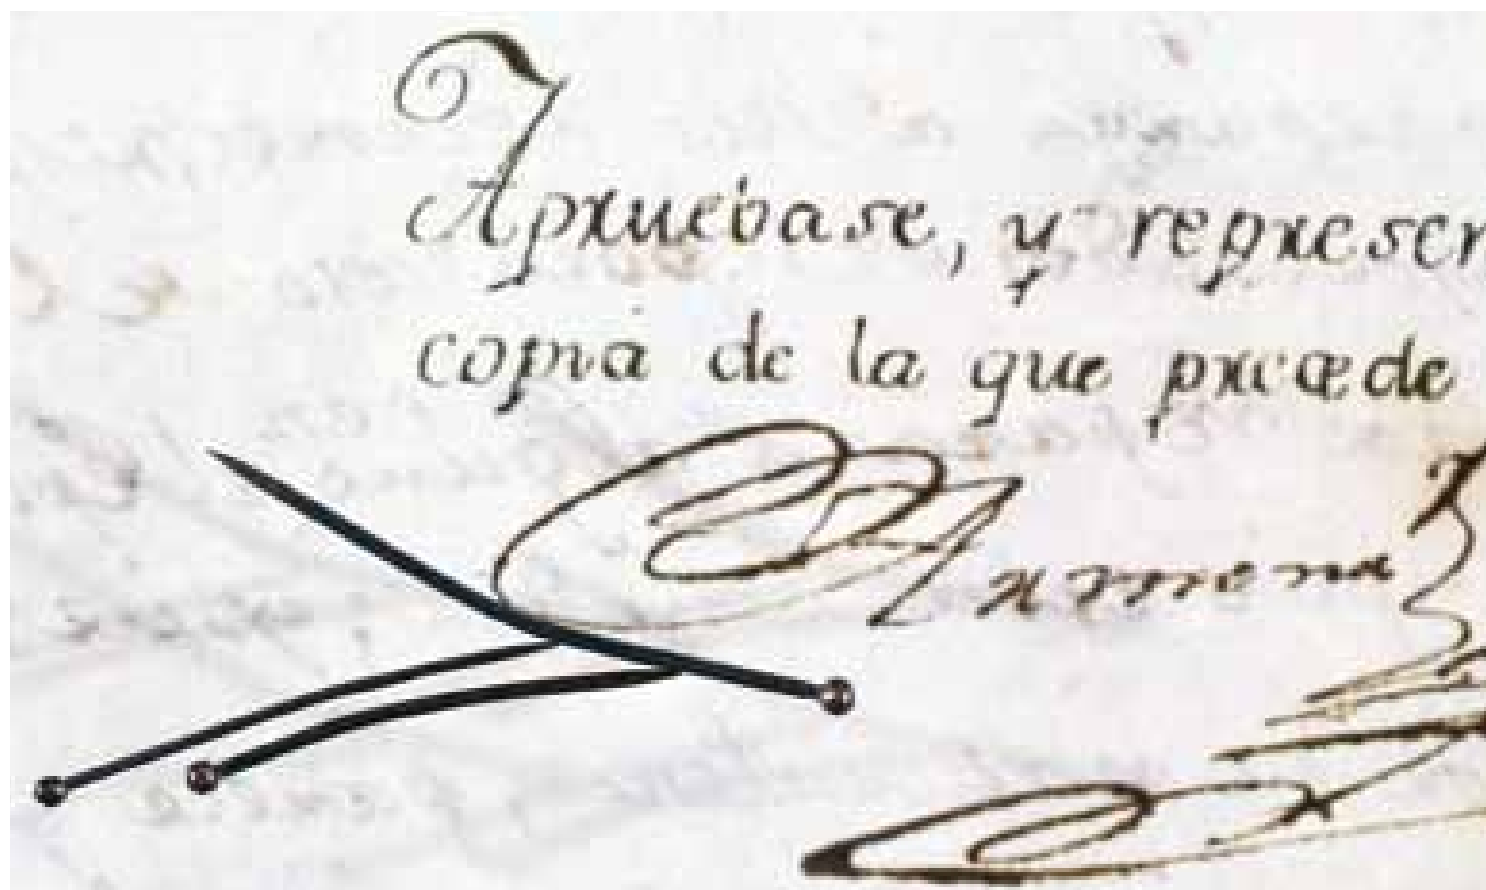 Apruebase, y represen
copia de la que precede
Armena